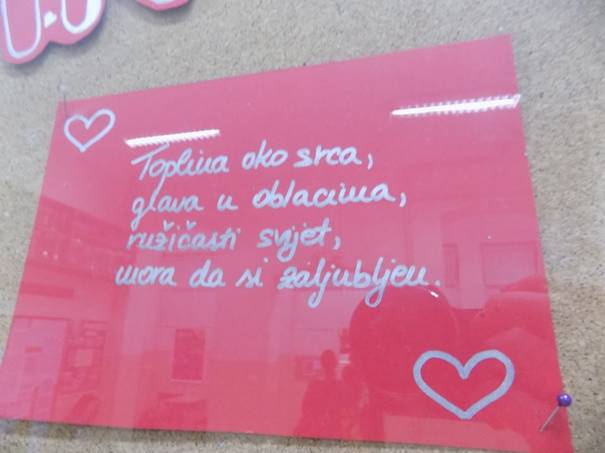 Toplina oko srca,
glava u oblacima,
ružičasti svijet,
mora da si zaljubljen.